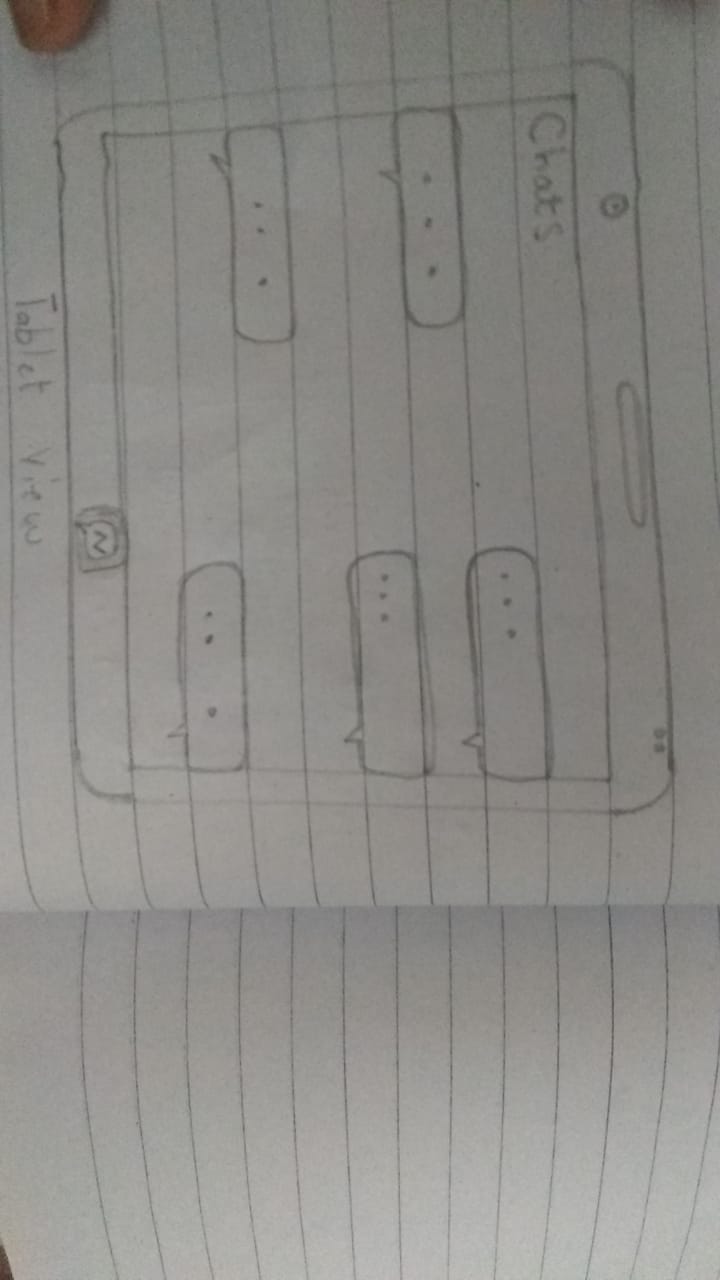 Chats
Tablet View